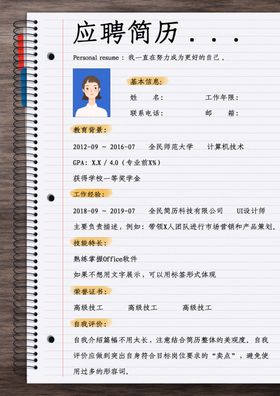 应聘简历...
Personal resume：我一直在努力成为更好的自己。
基本信息:
姓 名: 工作年限:
联系电话: 邮 箱:
教育背景:
2012-09 ~ 2016-07 全民师范大学 计算机技术
GPA: X.X / 4.0 (专业前X%)
获得学校一等奖学金
工作经验:
2018-09 ~ 2019-07 全民简历科技有限公司 UI设计师
主要负责描述，例如：带领X人团队进行市场营销和产品策划。
技能特长:
熟练掌握Office软件
如果不想用文字展示，可以用标签形式体现
荣誉证书:
高级技工 高级技工 高级技工
自我评价:
自我介绍篇幅不用太长，注意结合简历整体的美观度。自我
评价应做到突出自身符合目标岗位要求的“卖点”，避免使
用过多的形容词。